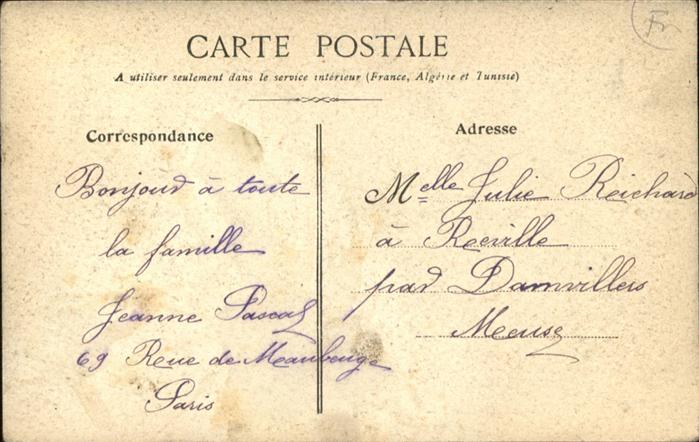 Fr
CARTE POSTALE
A utiliser seulement dans le service intérieur (France, Algérie et Tunisie)
Correspondance
Bonjour à toute
la famille
Jeanne Pascal
69 Rue de Maubeuge
Paris
Adresse
Melle Julie Reichard
à Réville
par Damvillers
Meuse